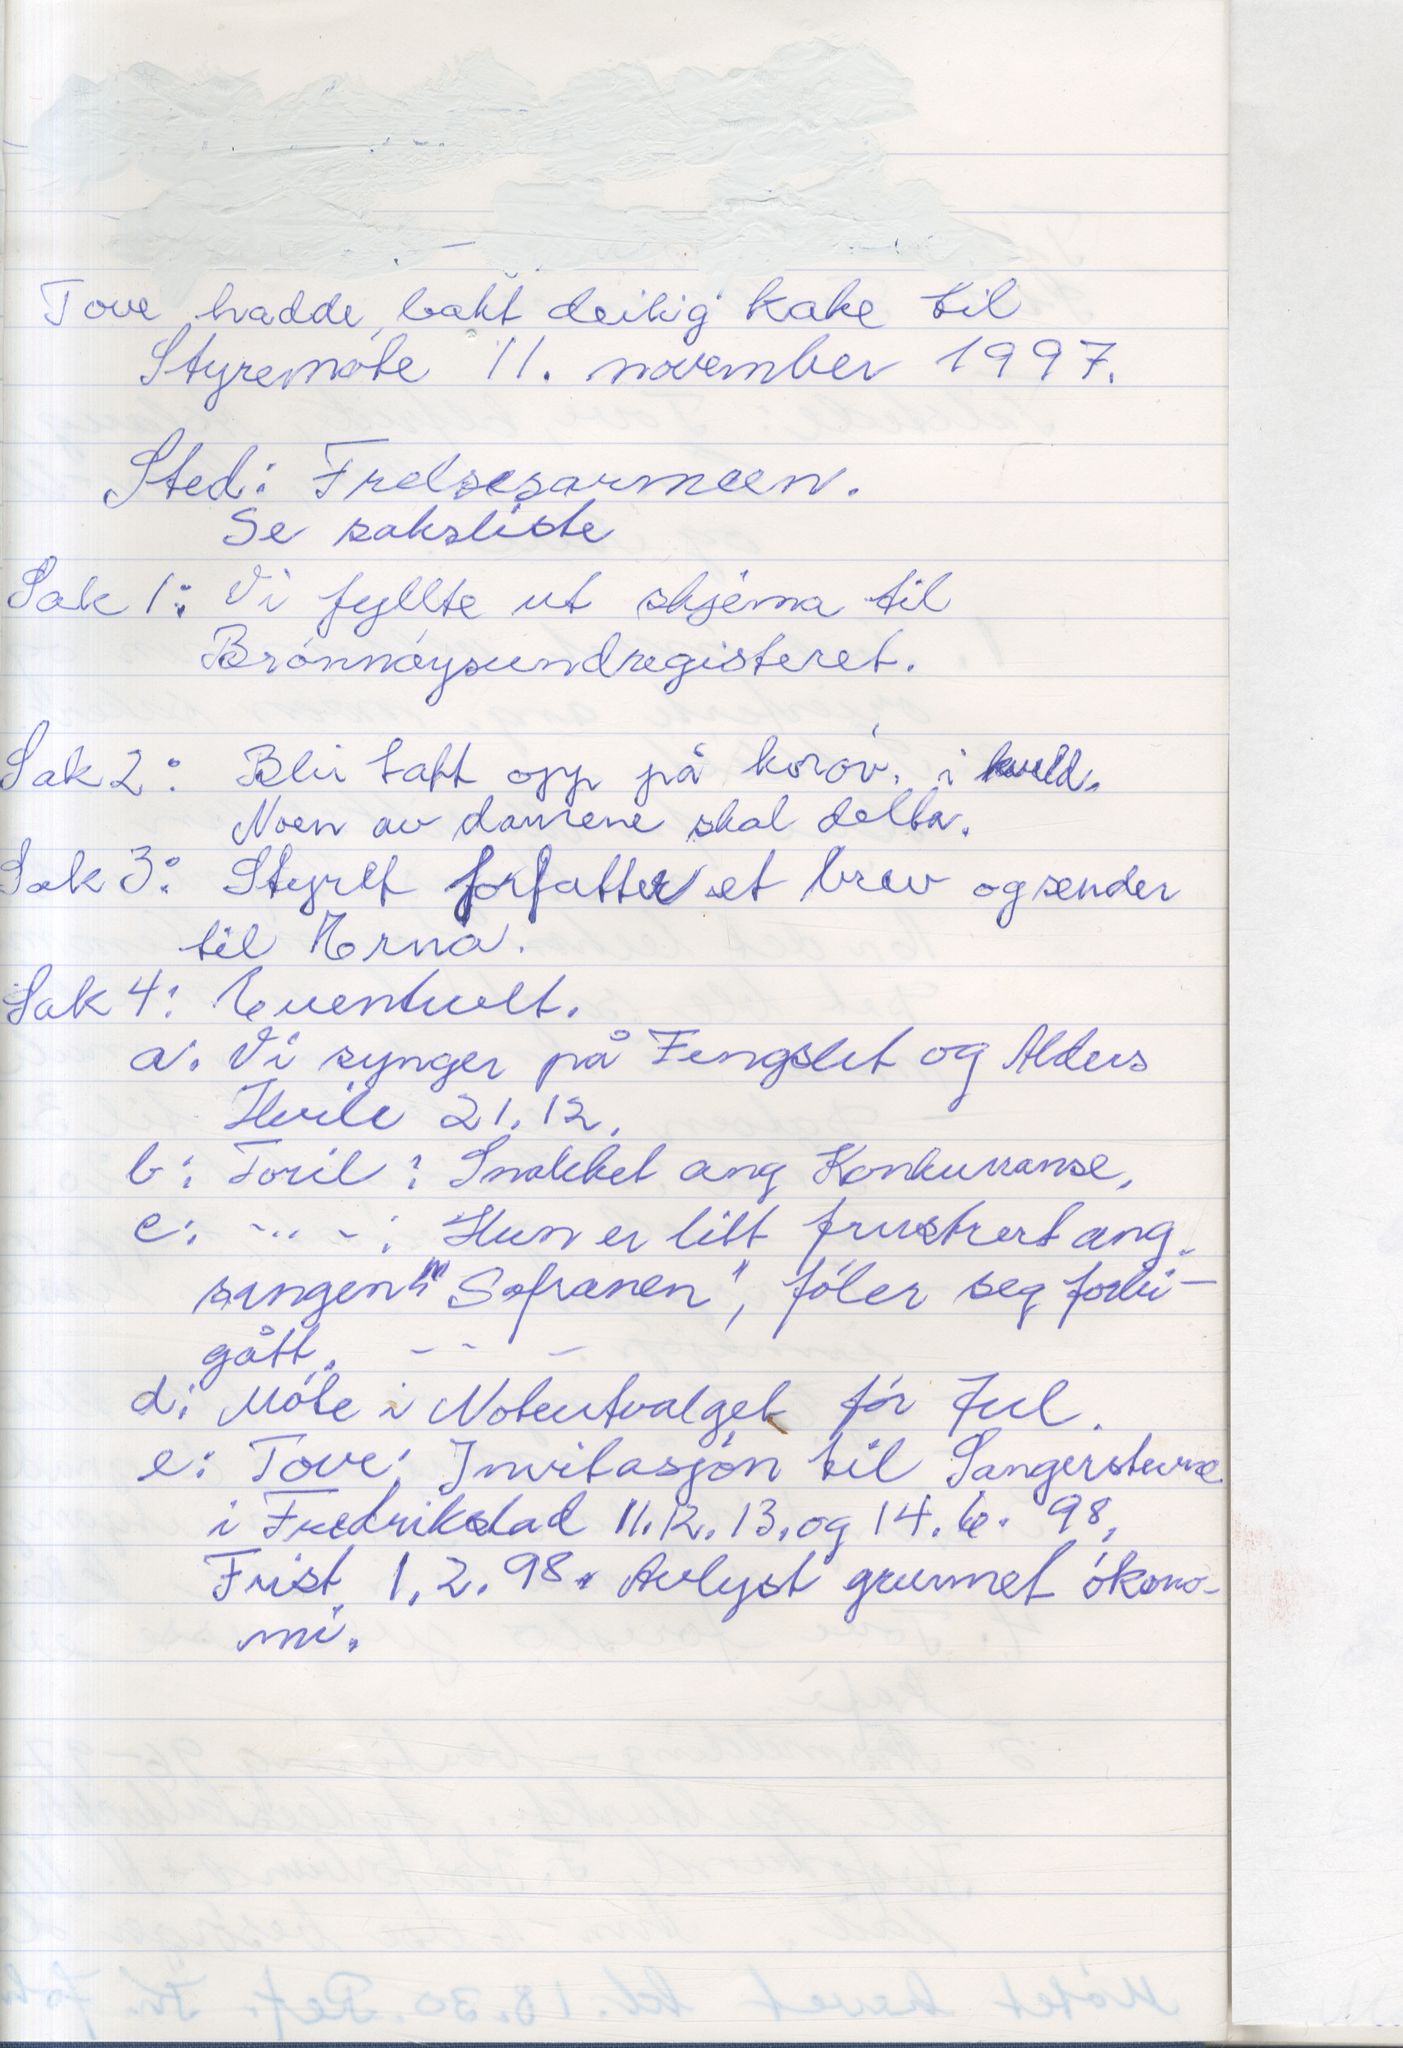 Tove hadde bakt deilig kake til
Styremøte 11. november 1997.
Sted: Frelsesarmeen.
Se saksliste
Sak 1: Vi fyllte ut skjema til
Brønnøysundregisteret.
Sak 2: Blir tatt opp på korøv. i kveld.
Noen av damene skal delta.
Sak 3: Styret forfatter et brev og sender
til Erna.
Sak 4: Eventuelt.
a. Vi synger på Fengslet og Alders
Hvile 21.12.
b: Toril: Snakket ang Konkurranse,
c: -..-: Hun er litt frustrert ang.
sangen "Sofranen", føler seg forbi-
gått. - - -
d: Møte i Noteutvalget før Jul.
e: Tove: Invitasjon til Sangerstevne
i Fredrikstad 11.12.13. og 14.6. 98,
Frist 1.2.98. Avlyst grunnet økono-
mi.